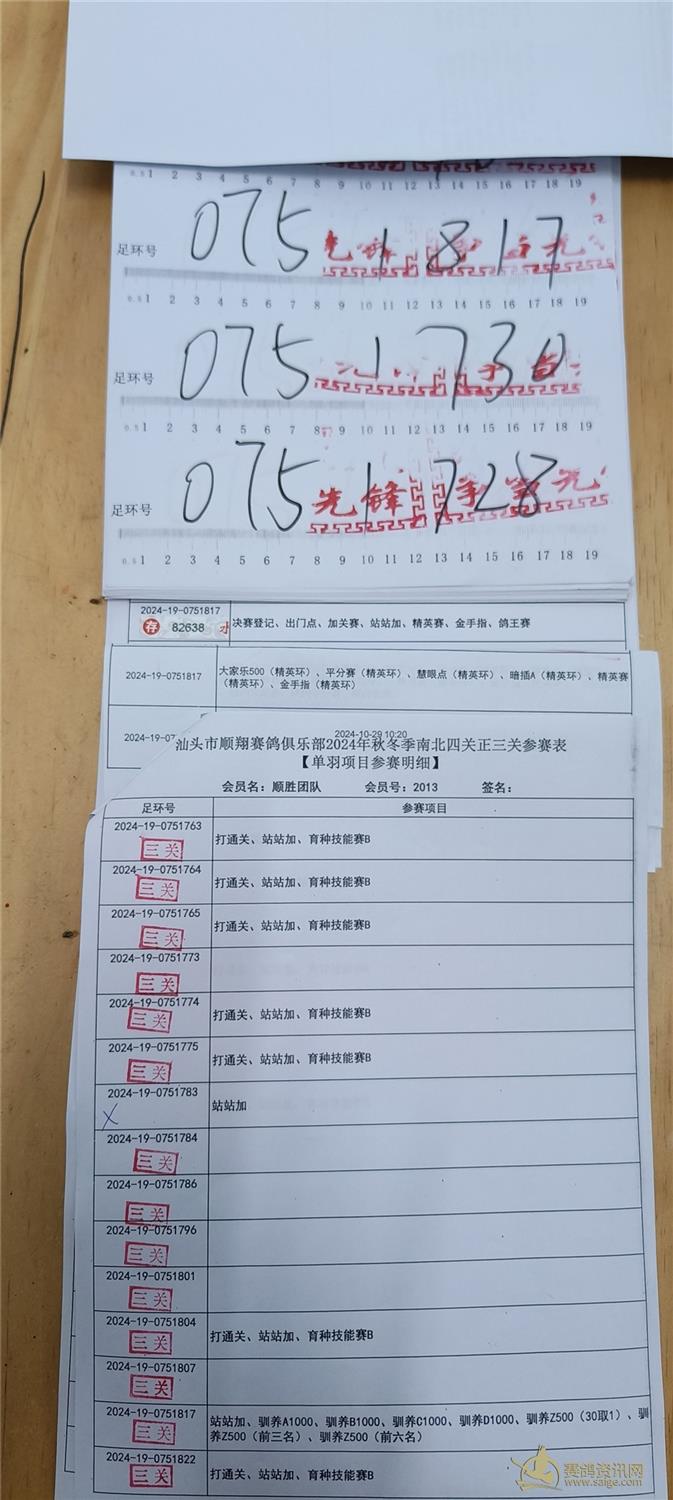 0.5 1 2 3 4 5 6 7 8 9 10 11 12 13 14 15 16 17 18 19
足环号 0751817
0.5 1 2 3 4 5 6 7 8 9 10 11 12 13 14 15 16 17 18 19
足环号 0751730
0.5 1 2 3 4 5 6 7 8 9 10 11 12 13 14 15 16 17 18 19
足环号 0751728
先锋
0.5 1 2 3 4 5 6 7 8 9 10 11 12 13 14 15 16 17 18 19
2024-19-0751817
存 82638
决赛登记、出门点、加关赛、站站加、精英赛、金手指、鸽王赛
2024-19-0751817
大家乐500（精英环）、平分赛（精英环）、慧眼点（精英环）、暗插A（精英环）、精英赛
（精英环）、金手指（精英环）
2024-10-29 10:20
2024-19-07
汕头市顺翔赛鸽俱乐部2024年秋冬季南北四关正三关参赛表
【单羽项目参赛明细】
会员名：顺胜团队 会员号：2013 签名：
足环号 参赛项目
2024-19-0751763
三关
打通关、站站加、育种技能赛B
2024-19-0751764
三关
打通关、站站加、育种技能赛B
2024-19-0751765
三关
打通关、站站加、育种技能赛B
2024-19-0751773
三关
2024-19-0751774
三关
打通关、站站加、育种技能赛B
2024-19-0751775
三关
打通关、站站加、育种技能赛B
2024-19-0751783
X
站站加
2024-19-0751784
三关
2024-19-0751786
三关
2024-19-0751796
三关
2024-19-0751801
三关
2024-19-0751804
三关
打通关、站站加、育种技能赛B
2024-19-0751807
三关
2024-19-0751817
三关
站站加、驯养A1000、驯养B1000、驯养C1000、驯养D1000、驯养Z500（30取1）、驯
养Z500（前三名）、驯养Z500（前六名）
2024-19-0751822
三关
打通关、站站加、育种技能赛B
赛鸽资讯网
www.saige.com